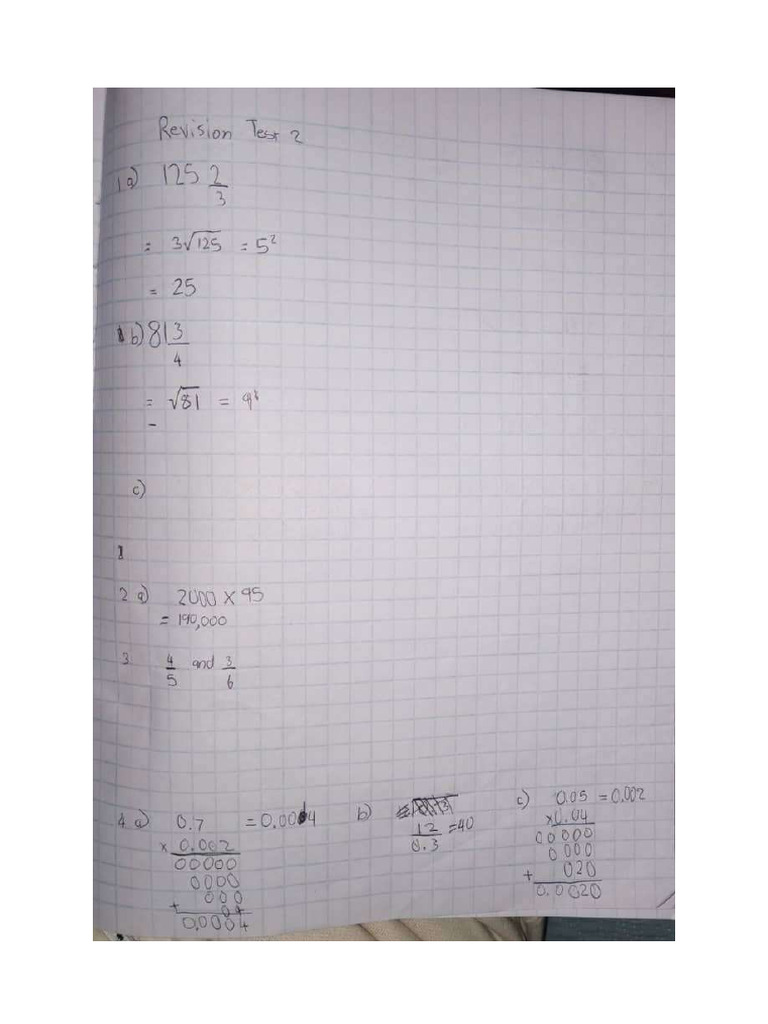 Revision Test 2
1a) 125 2/3
= 3√125 = 5²
= 25
b) 81 3/4
= √81 =
-
c)
1
2 a) 2000 x 95
= 190,000
3 4/5 and 3/6
4 a) 0.7 = 0.0014
x 0.002
00000
0000
000
+
0.0004
b)
12/0.3 = 40
c) 0.05 = 0.002
x 0.04
00000
0000
+ 020
0.0020